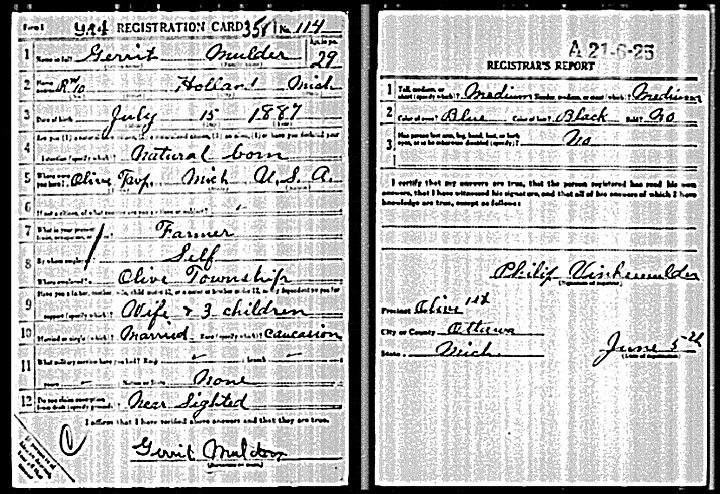 Form 1 REGISTRATION CARD No. 114
1 Name in full Gerrit Mulder Age, in yrs. 29
2 Home address R# 10 Holland Mich
3 Date of birth July 15 1887
4 Are you (1) a natural born citizen, (2) a naturalized citizen, (3) an alien, (4) or have you declared your
intention (specify which)? Natural born
5 Where were you born? Olive Twp. Mich U.S.A.
6 If not a citizen, of what country are you a citizen or subject?
7 What is your present trade, occupation, or office? Farmer
8 By whom employed? Self
Where employed? Olive Township
9 Have you a father, mother, wife, child under 12, or a sister or brother under 12, solely dependent on you for
support (specify which)? Wife & 3 children
10 Married or single (which)? Married Race (specify which)? Caucasion
11 What military service have you had? Rank - branch -
years - Nation or State None
12 Do you claim exemption from draft (specify grounds)? Near Sighted
I affirm that I have verified above answers and that they are true.
Gerrit Mulder
(Signature or mark)
A 21-6-25
REGISTRAR'S REPORT
1 Tall, medium, or short (specify which)? Medium Slender, medium, or stout (which)? Medium
2 Color of eyes? Blue Color of hair? Black Bald? No
3 Has person lost arm, leg, hand, foot, or both eyes, or is he otherwise disabled (specify)? No
I certify that my answers are true, that the person registered has read his own
answers, that I have witnessed his signature, and that all of his answers of which I have
knowledge are true, except as follows:
Philip Vinkemulder
(Signature of registrar)
Precinct Olive 1st
City or County Ottawa
State Mich. June 5th
(Date of registration)